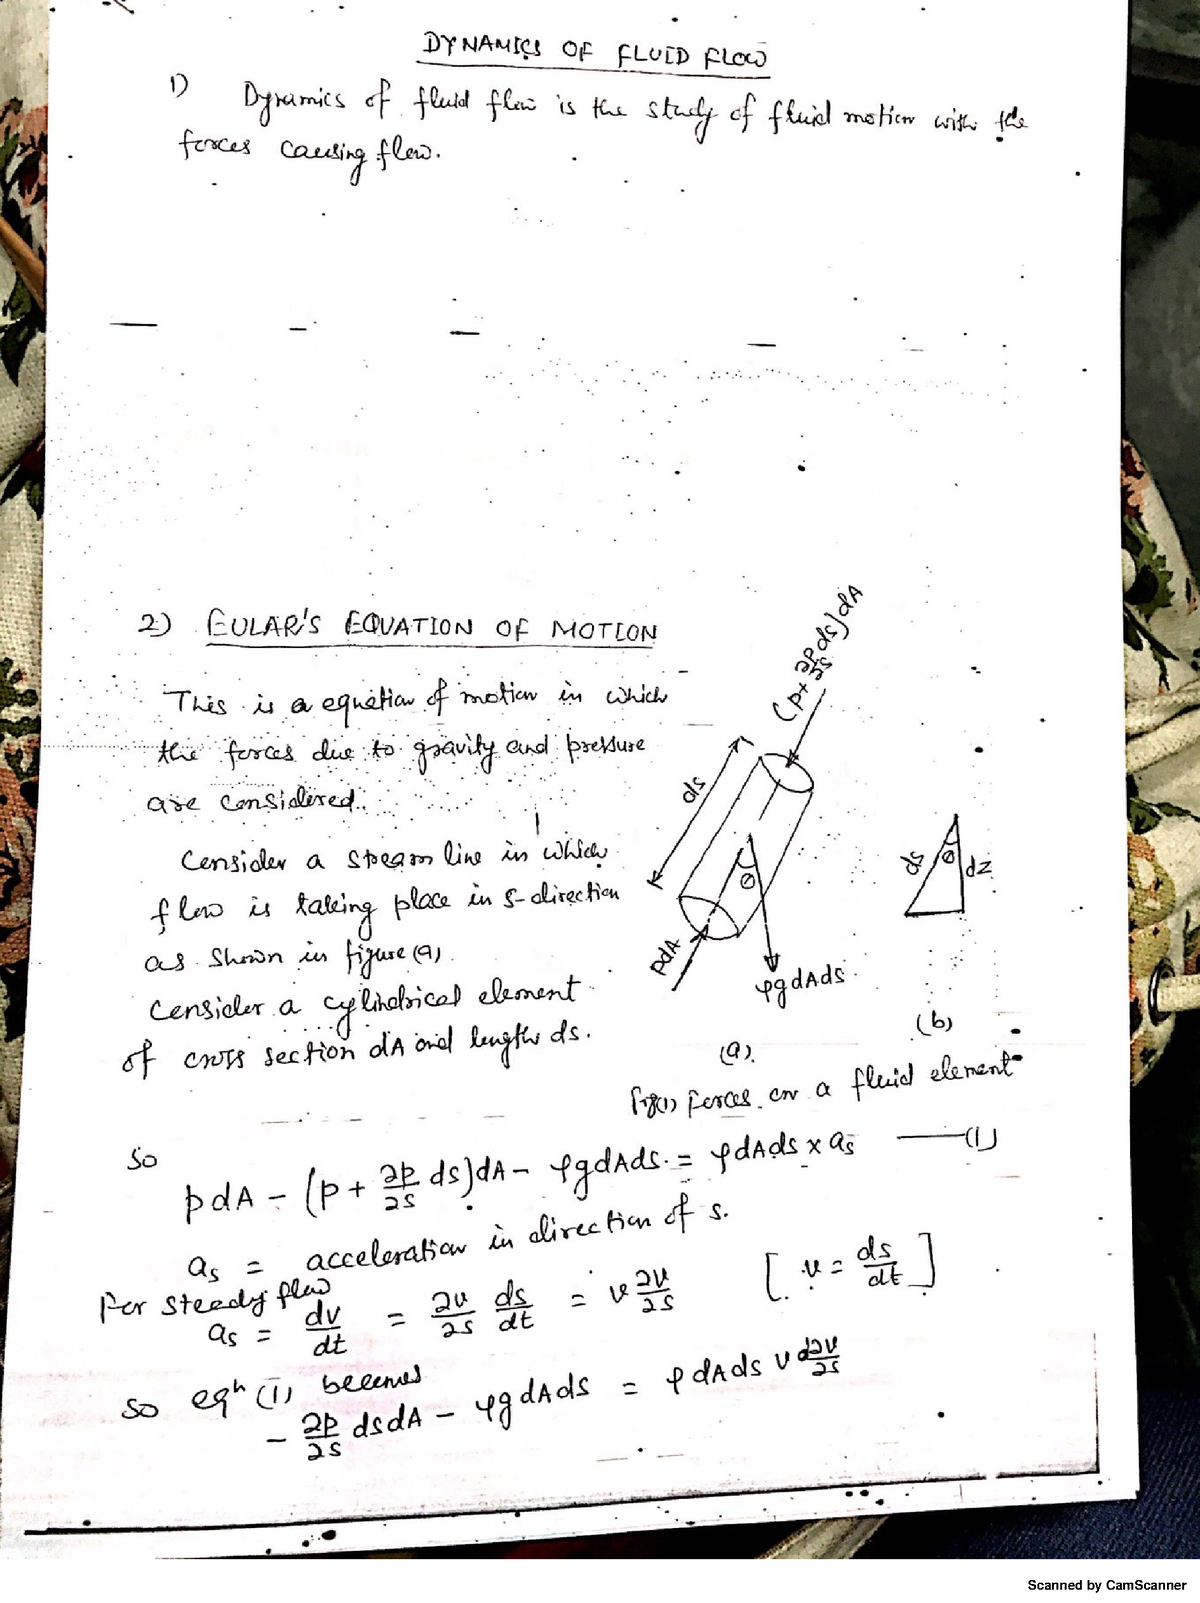 DYNAMICS OF FLUID FLOW
1) Dynamics of fluid flow is the study of fluid motion with the
forces causing flow.
2) EULAR'S EQUATION OF MOTION
This is a equation of motion in which
the forces due to gravity and pressure
are considered.
Consider a stream line in which
flow is taking place in s-direction
as shown in figure (a).
Consider a cylindrical element
of cross section dA and length ds.
(p + ∂p/∂s ds) dA
ds
θ
pdA
ρgdAds
(a)
ds
θ
dz
(b)
Fig(1) Forces on a fluid element
So
pdA - (p + ∂p/∂s ds) dA - ρgdAds = ρdAds x as —(1)
as = acceleration in direction of s.
For steady flow
as = dv/dt = ∂v/∂s ds/dt = v ∂v/∂s [ v = ds/dt ]
So eqn (1) becomes
- ∂p/∂s dsdA - ρgdAds = ρdAds v d∂v/∂s
Scanned by CamScanner